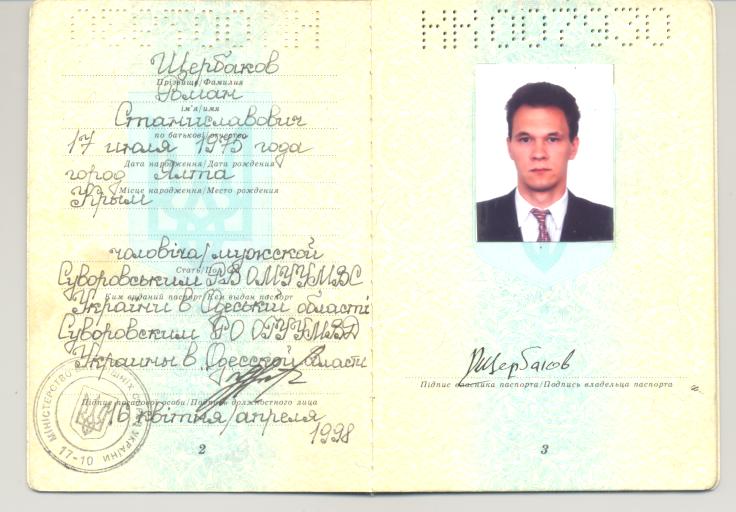 Щербаков
Прізвище/Фамилия
Роман
ім'я/имя
Станиславович
по батькові/отчество
17 июля 1975 года
Дата народження/Дата рождения
город Ялта
Місце народження/Место рождения
Крым
чоловіча/мужской
Стать/Пол
Суворовським РВ ОМУ УМВС
Ким виданий паспорт/Кем выдан паспорт
України в Одеській області
Суворовским РО ОГУ УМВД
Украины в Одесской области
Підпис посадової особи/Подпись должностного лица
16 квітня/апреля
1998
МІНІСТЕРСТВО ВНУТРІШНІХ СПРАВ УКРАЇНИ
17-10
2
КК007930
Щербаков
Підпис власника паспорта/Подпись владельца паспорта
3